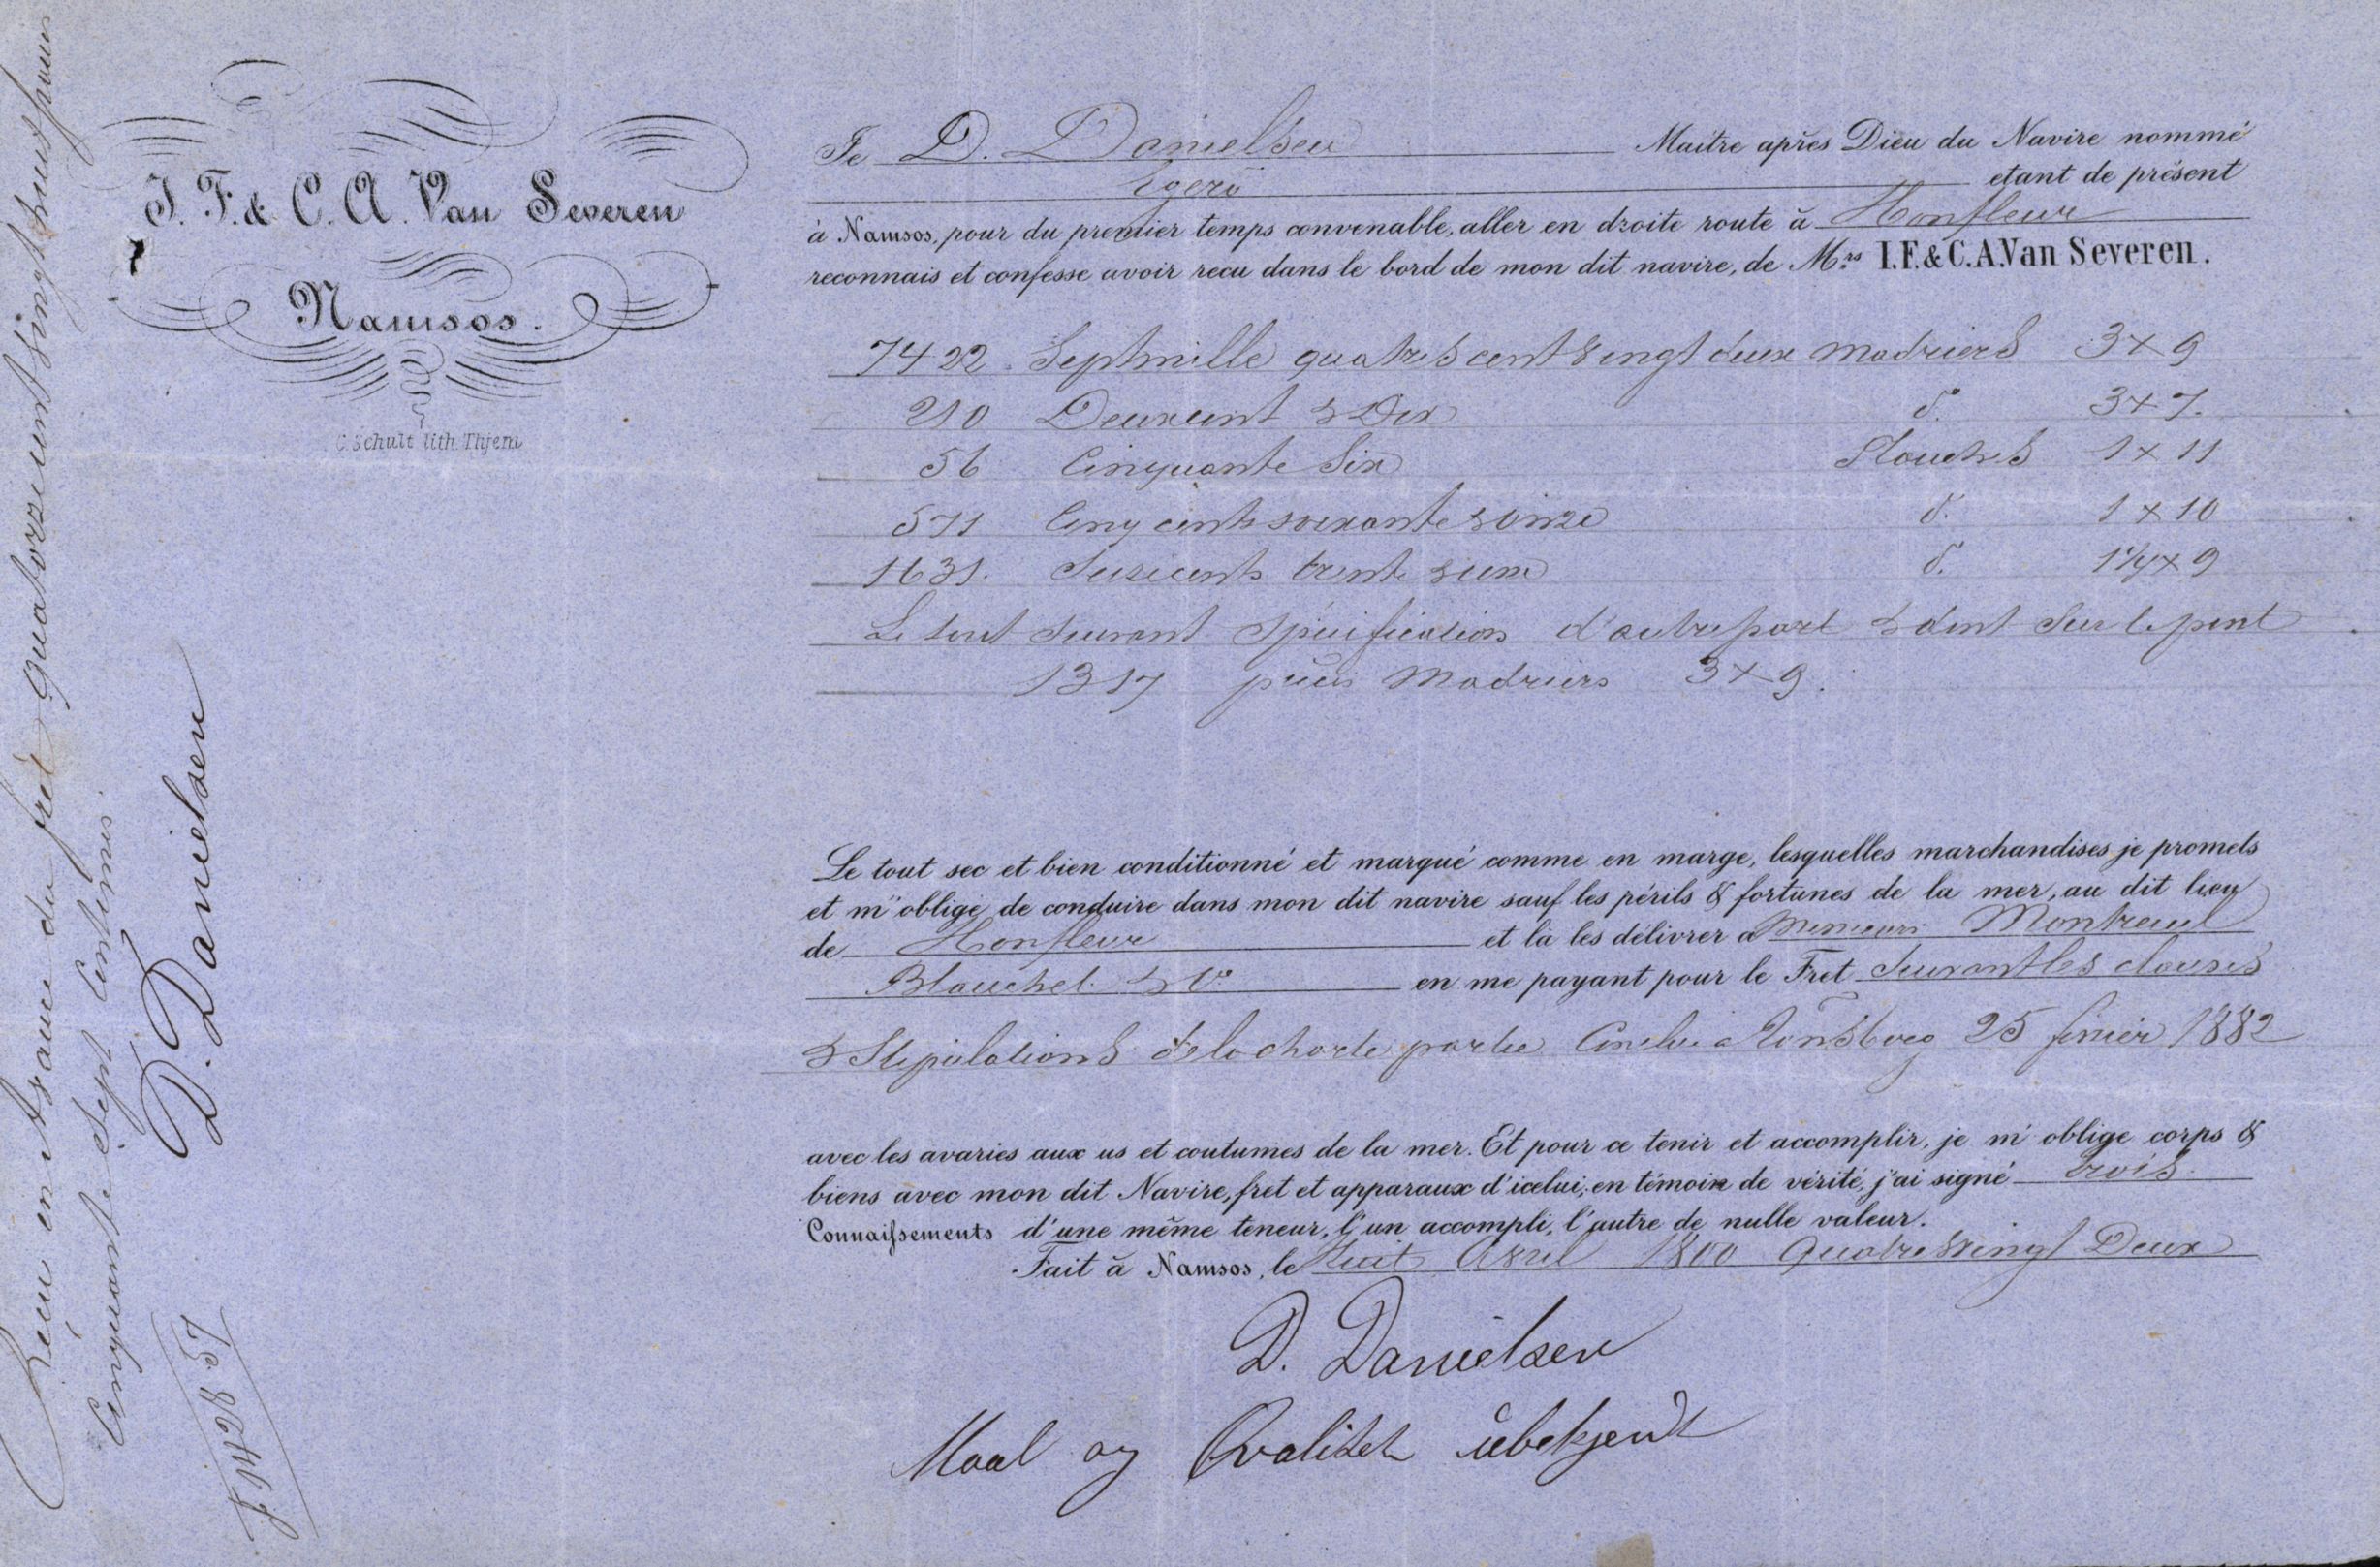 J. F. & C. A. Van Severen
Namsos.
C. Schult lith. Thjem
Je D. Danielsen Maitre après Dieu du Navire nommé
Egerö etant de présent
à Namsos, pour du premier temps convenable, aller en droite route à Honfleur
reconnais et confesse avoir recu dans le bord de mon dit navire, de Mrs I.F. & C.A. Van Severen.
7422. Septmille quatre cent vingt deux madriers 3 x 9
210 Deux cent & Dix d°. 3 x 7.
56 Cinquante Six 1 x 11
571 Cinq cents soixante & onze d°. 1 x 10
1631. Seize cents trente & une d°. 1 1/4 x 9
Le tout suivant spécification d'autre part & dont sur le pont
1317 pièces Madriers 3 x 9.
Le tout sec et bien conditionné et marqué comme en marge, lesquelles marchandises je promets
et m'oblige de conduire dans mon dit navire sauf les périls & fortunes de la mer, au dit lieu
de Honfleur et là les délivrer a Messieurs Montreuil
Blanchet & Co en me payant pour le Fret Suivant les clauses
& Stipulations de la charte partie Conclue a Tönsberg 25 fevrier 1882
avec les avaries aux us et coutumes de la mer. Et pour ce tenir et accomplir, je m'oblige corps &
biens avec mon dit Navire, fret et apparaux d'icelui; en témoin de vérité, j'ai signé trois.
Connaissements d'une même teneur, l'un accompli, l'autre de nulle valeur.
Fait à Namsos, le huit Avril 1800 Quatre vingt Deux
D. Danielsen
Maal og Qvalitet ubekjendt
Récu en avance du frèt quatorze cent vingt huit francs
Cinquante sept Centimes.
D. Danielsen
f 1428 57